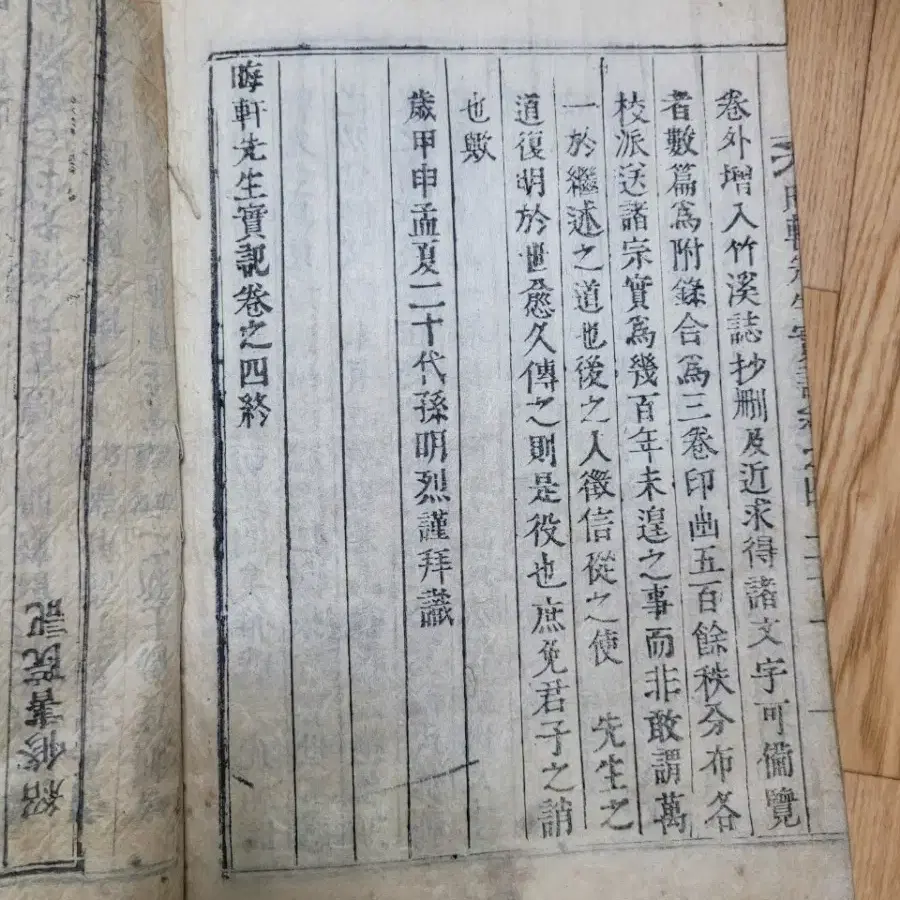 卷外增入竹溪誌抄刪及近求得諸文字可備覽
者數篇爲附錄合爲三卷印出五百餘秩分布各
校派送諸宗實爲幾百年未遑之事而非敢謂萬
一於繼述之道也後之人徵信從之使　先生之
道復明於世愈久傳之則是役也庶免君子之誚
也歟
歲甲申孟夏二十代孫明烈謹拜識
晦軒先生實記卷之四終
紹修書院記